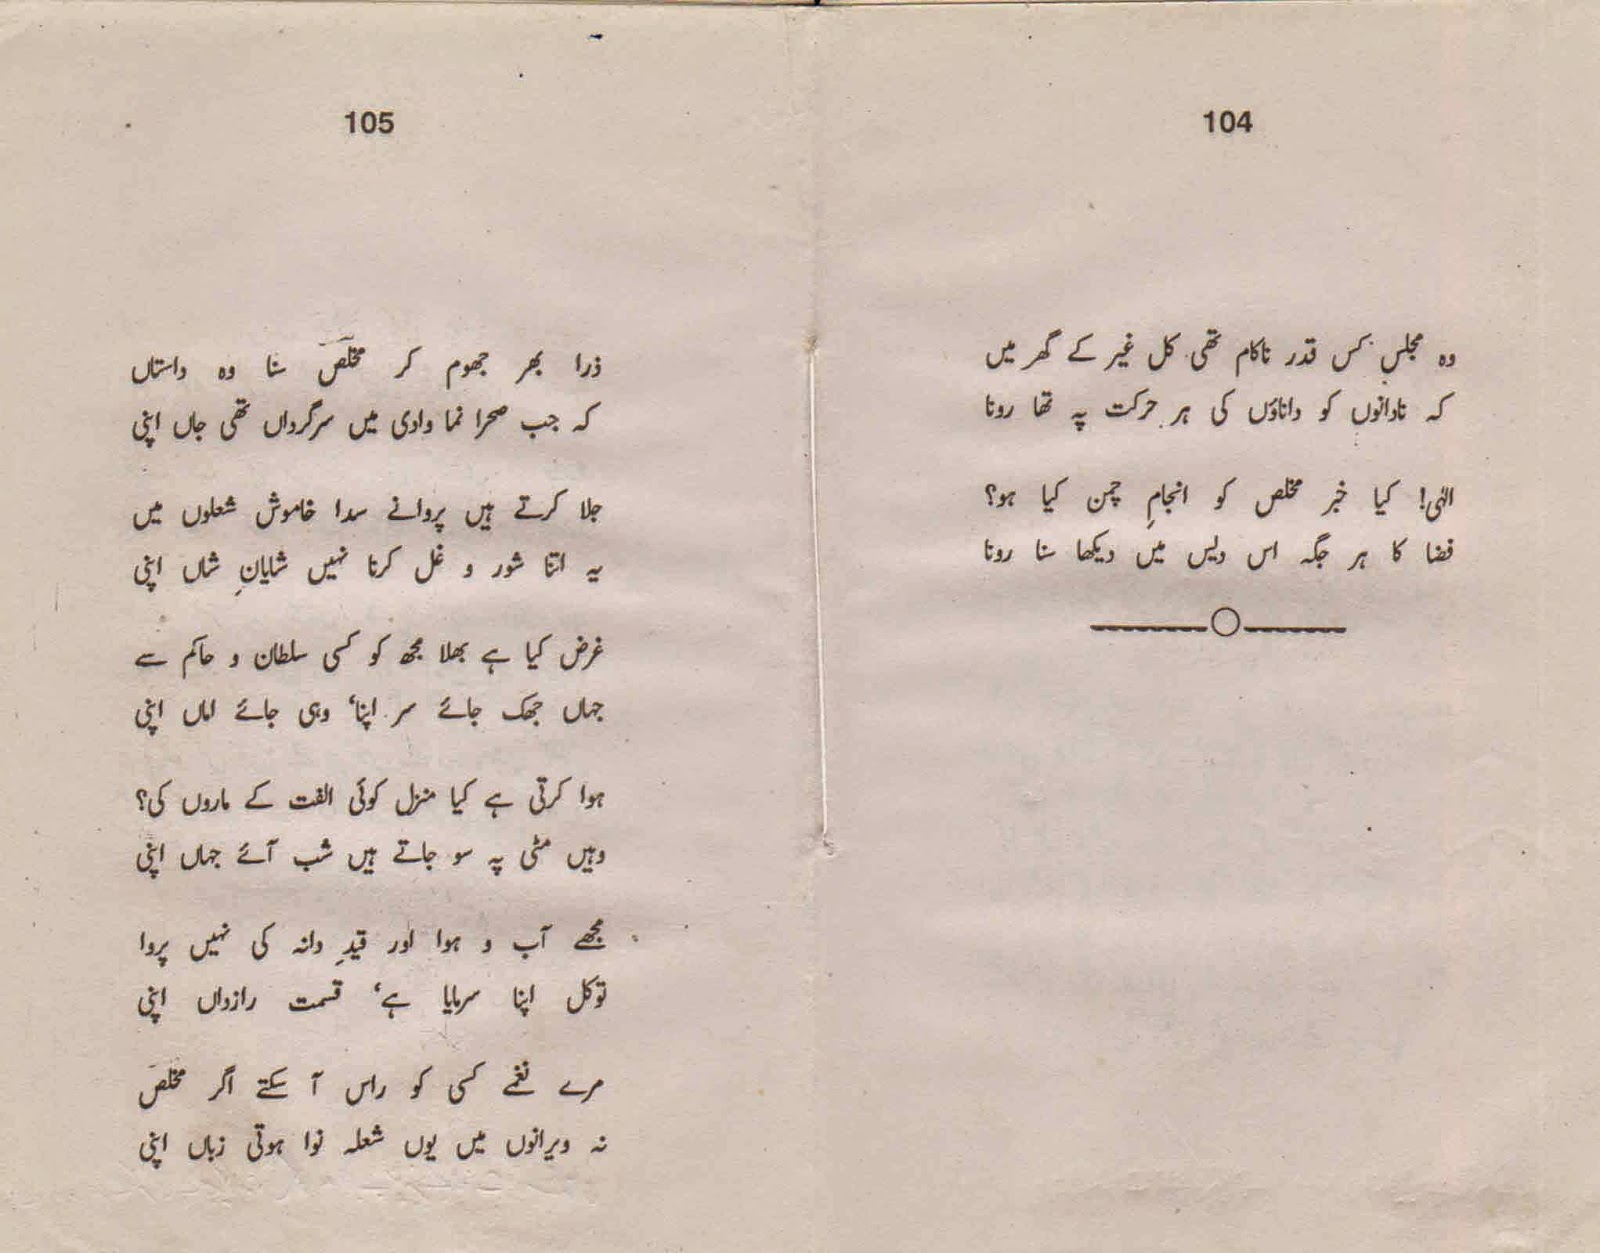 104
وہ مجلس کس قدر ناکام تھی کل غیر کے گھر میں
کہ نادانوں کو داناؤں کی ہر حرکت پہ تھا رونا
الٰہی! کیا خبر مخلص کو انجامِ چمن کیا ہو؟
فضا کا ہر جگہ اس دیس میں دیکھا سنا رونا
105
ذرا بھر جھوم کر مخلص سنا وہ داستاں
کہ جب صحرا نما وادی میں سرگرداں تھی جاں اپنی
جلا کرتے ہیں پروانے سدا خاموش شعلوں میں
یہ اتنا شور و غل کرنا نہیں شایانِ شاں اپنی
غرض کیا ہے بھلا مجھ کو کسی سلطان و حاکم سے
جہاں جھک جائے سر اپنا، وہی جائے اماں اپنی
ہوا کرتی ہے کیا منزل کوئی الفت کے ماروں کی؟
وہیں مٹی پہ سو جاتے ہیں شب آئے جہاں اپنی
مجھے آب و ہوا اور قیدِ دانہ کی نہیں پروا
توکل اپنا سرمایا ہے، قسمت رازداں اپنی
مرے نغمے کسی کو راس آ سکتے اگر مخلص
نہ ویرانوں میں یوں شعلہ نوا ہوتی زباں اپنی